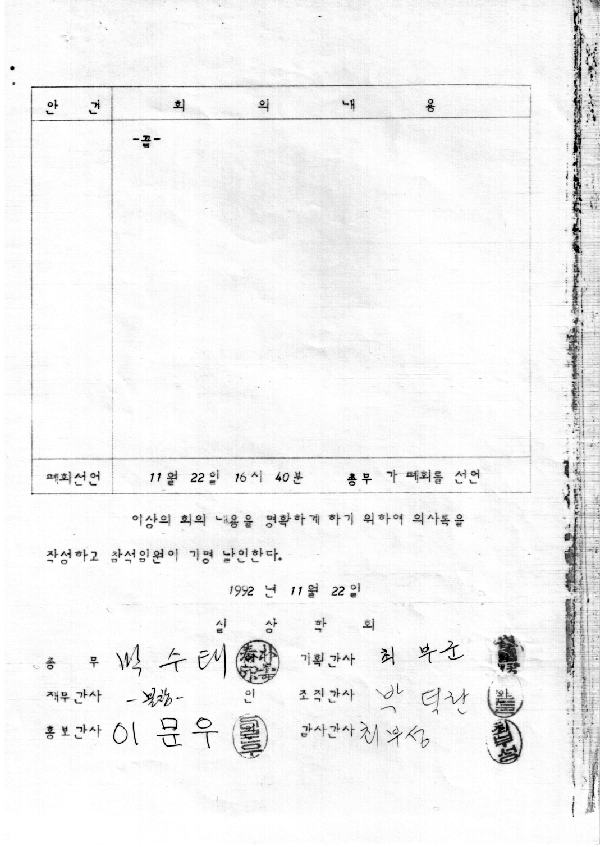 안 건 회 의 내 용
-끝-
폐회선언 11월 22일 16시 40분 총무 가 폐회를 선언
이상의 회의 내용을 명확하게 하기 위하여 의사록을
작성하고 참석임원이 기명 날인한다.
1992 년 11월 22일
실 상 학 회
총 무 박수태 기획간사 최부군
재무간사 -불참- 인 조직간사 박덕란
홍보간사 이문우 감사간사 최부성